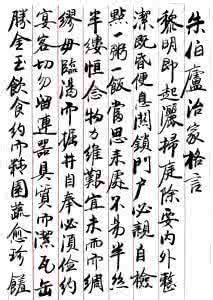 朱伯廬治家格言
黎明即起灑掃庭除要內外整
潔既昏便息關鎖門戶必親自檢
點一粥一飯當思来處不易半絲
半縷恒念物力維艱宜未雨而綢
繆毋臨渴而掘井自奉必須儉約
宴客切勿留連器具質而潔瓦缶
勝金玉飲食約而精園蔬愈珍饈